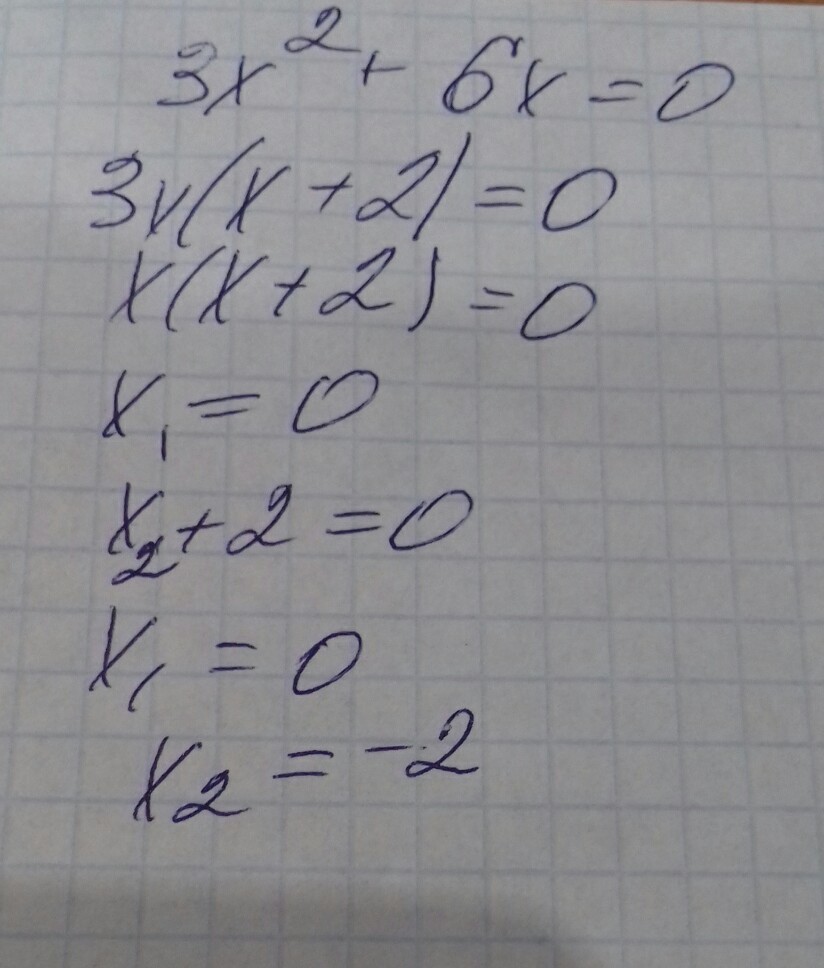 3x² + 6x = 0
3x(x + 2) = 0
x(x + 2) = 0
x₁ = 0
x₂ + 2 = 0
x₁ = 0
x₂ = -2